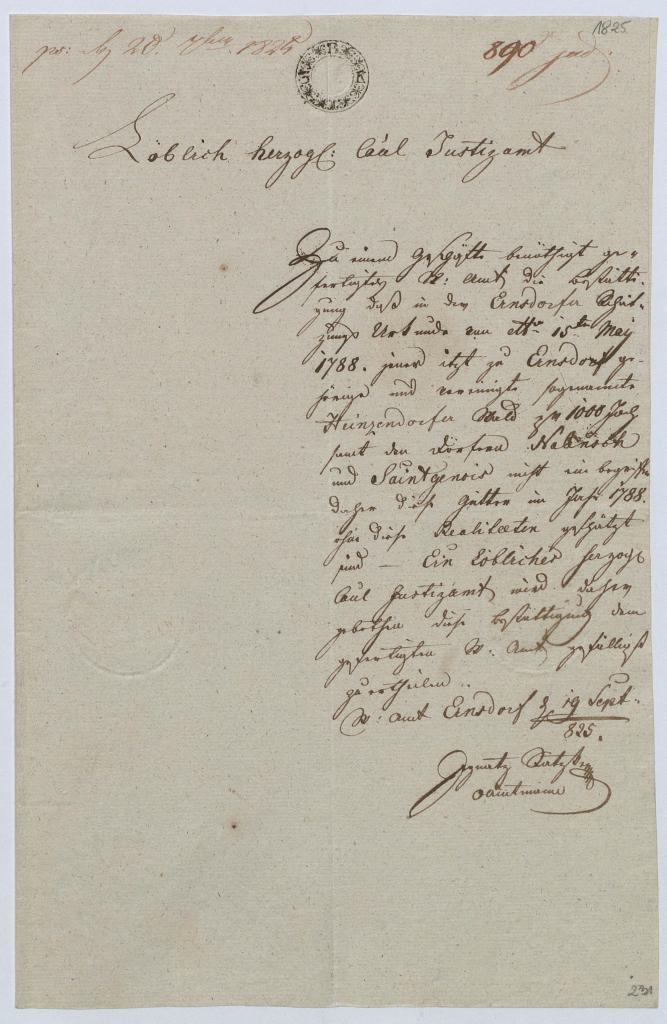 1825
890 jud.
Löblich herzogl: Caal Justizamt
Zu einem Geschäfte benöthigt ge-
fertigtes W: Amt die Bestätti-
gung daß in der Ernsdorfer Schät-
zungs Urkunde vom 15ten May
1788. jener itzt zu Ernsdorf ge-
hörige und vereinigte sogenannte
Heinzendorfer Wald pr 1000 Joch
samt den Dörfern
und nicht ein begriffen
daher diese Gütter im Jahr 1788.
ohne diese Realitæten geschätzt
sind — Ein Löbliches herzogl
Caal Justizamt wird daher
gebethen diese Bestättigung dem
gefertigten W: Amt gefälligst
zu ertheilen.
W: Amt Ernsdorf d. 19 Sept.
825.
Ignatz
Oamtmann
231